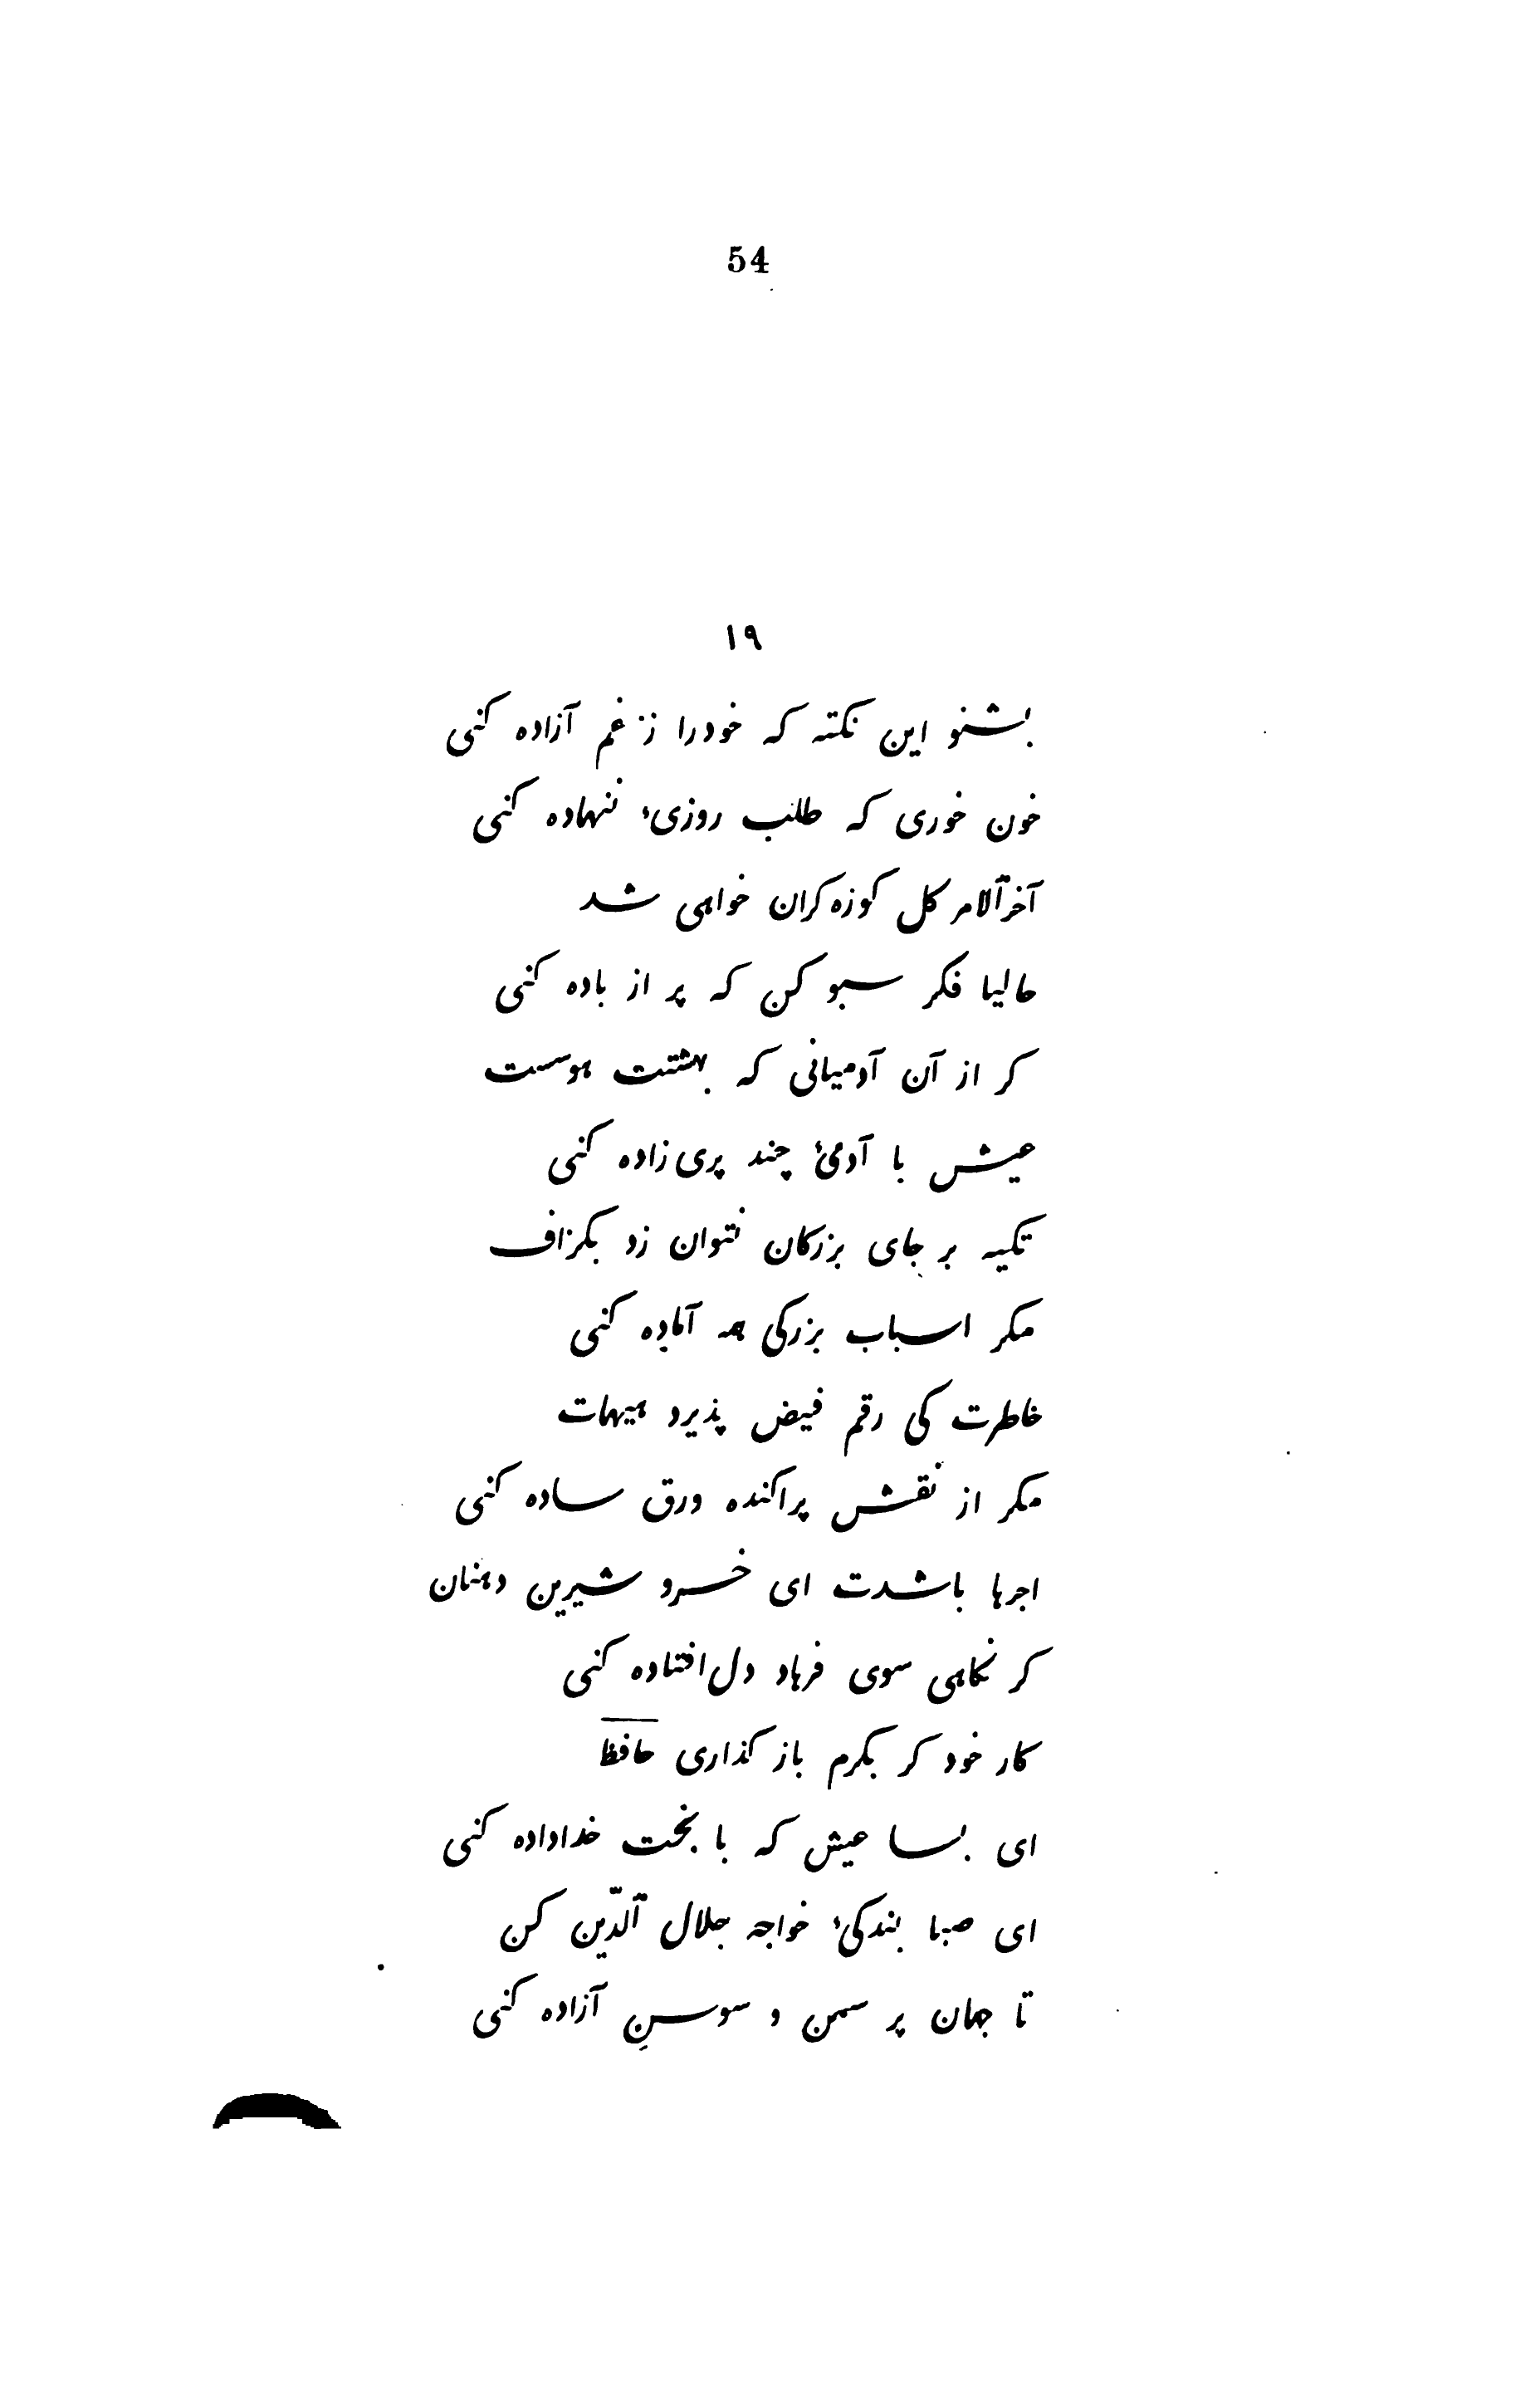 54
١٩
بشنو این نکته که خودرا ز غم آزاده کنی
خون خوری که طلب روزیٔ ننهاده کنی
آخرآلامر کل کوزه کران خواهی شد
حالیا فکر سبو کن که پر از باده کنی
کر از آن آدمیانی که بهشتت هوست
عیش با آدمیٔ چند پری زاده کنی
تکیه بر جای بزرکان نتوان زد بکزاف
مکر اسباب بزرکی همه آماده کنی
خاطرت کی رقم فیض پذیرد هیهات
مکر از نقش پراکنده ورق ساده کنی
اجرها باشدت ای خسرو شیرین دهنان
کر نکاهی سوی فرهاد دل افتاده کنی
کار خود کر بکرم باز کذاری حافظ
ای بسا عیش که با بخت خداداده کنی
ای صبا بندکیٔ خواجه جلال آلدّین کن
تا جهان پر سمن و سوسنِ آزاده کنی